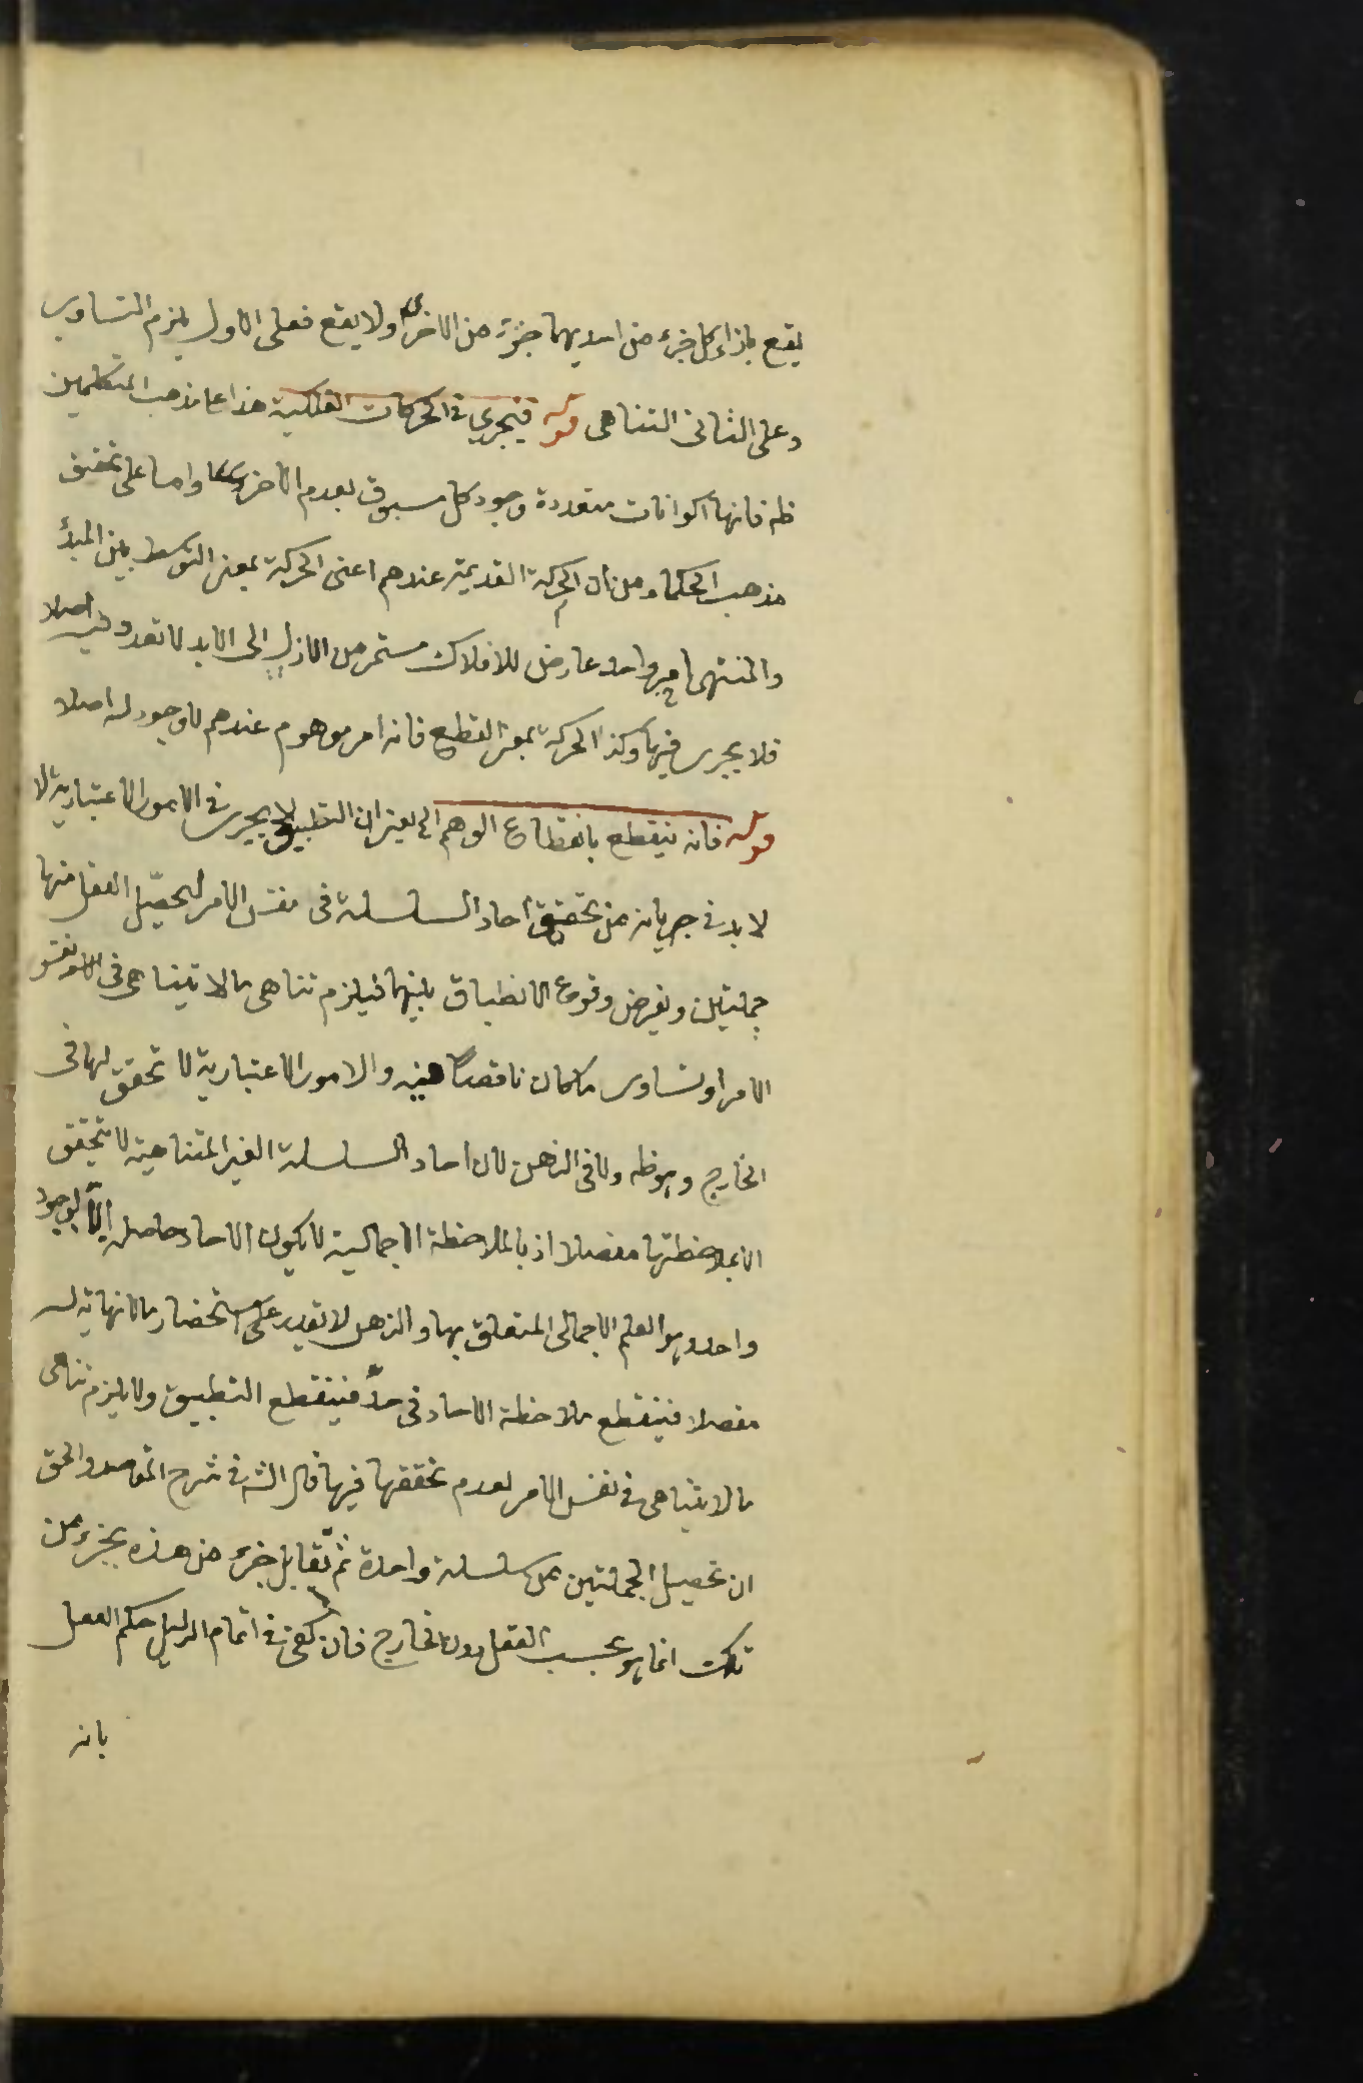 يقع بازاء كل جزء من احديهما جزء من الاخرى اولا يقع فعلى الاول يلزم التساوي
وعلى الثانى التناهى قوله فيجري في الحركات الفلكية هذا على مذهب المتكلمين
ظه فانها اكوانات متعددة وجود كل مسبوق بعدم الآخر واما على تحقيق
مذهب الحكماء من ان الحركة القديمة عندهم اعنى الحركة بمعنى التوسط بين المبدأ
والمنتهى امر واحد عارض للافلاك مستمر من الازل الى الابد لا تعدد فيه اصلا
فلا يجرى فيها وكذا الحركة بمعنى القطع فانه امر موهوم عندهم لا وجود له اصلا
قوله فانه ينقطع بانقطاع الوهم الخ يعنى ان التطبيق لا يجرى في الامور الاعتبارية لا
لا بد في جريانه من تحقق احاد السلسلة فى نفس الامر ليحصّل العقل منها
جملتين ويفرض وقوع الانطباق بينهما فيلزم تناهى مالا يتناهى فى نفس
الامر او تساوى ما كان ناقصا والامور الاعتبارية لا تحقق لها فى
الخارج وهو ظه ولا فى الذهن لان احاد السلسلة الغير المتناهية لا يتحقق
الا بملاحظتها مفصلا اذ بالملاحظة الاجمالية لا يكون الاحاد حاصلة الا بوجود
واحد وهو العلم الاجمالى المتعلق بها والذهن لا يقدر على استحضار مالا نهاية له
مفصلا فينقطع ملاحظة الاحاد فى حدّ فينقطع التطبيق ولا يلزم تناهى
مالا يتناهى في نفس الامر لعدم تحققها فيها قال الشه في شرح المقاصد والحق
ان تحصيل الجملتين من سلسلة واحدة ثم تقابل جزء من هذه بجزء من
تلك انما هو بحسب العقل دون الخارج فان كفى في اتمام الدليل حكم العقل
بانه